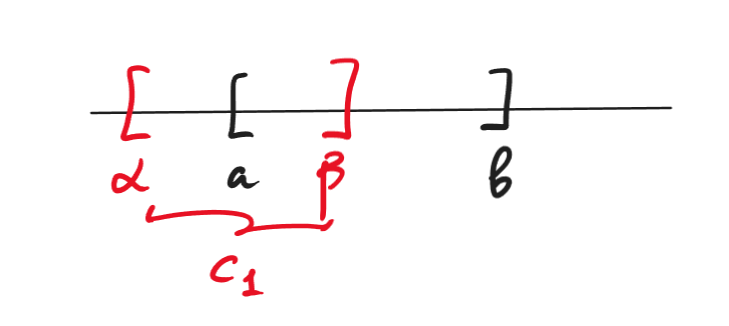 [ [ ] ]
α a β в
C₁